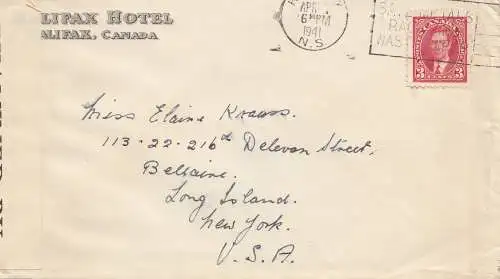 LIFAX HOTEL
ALIFAX, CANADA
APR
6 PM
1941
N.S.
CANADA
3 3
Miss Elaine Krauss.
113-22-216th Delevan Street,
Bellaire.
Long Island.
New York.
U.S.A.